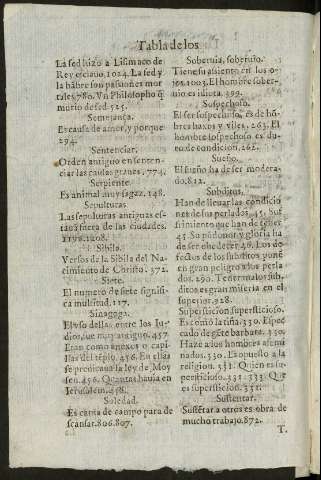 Tabla de los
La sed hizo a Lisimaco de
Rey esclauo, 1024. La sed y
la hãbre son passiones mor
tales, 780. Vn Philosopho q̃
murio de sed. 525.
Semejança.
Es causa de amor, y porque
294.
Sentenciar.
Orden antiguo en senten-
ciar las causas graues, 774.
Serpiente.
Es animal muy sagaz. 148.
Sepulturas.
Las sepulturas antiguas es-
tauã fuera de las ciudades.
1198.
Sibila.
Versos de la Sibila del Na-
cimiento de Christo. 372.
Siete.
El numero de siete signifi-
ca multitud. 117.
Sinagoga.
El vso dellas entre los Iu-
dios, fue muy antiguo. 457
Eran como anexos o capi-
llas del tẽplo. 456. En ellas
se predicaua la ley de Moy
sen. 456. Quantas hauia en
Ierusalem.
Soledad.
Es causa de campo para de
scansar. 806. 807.
Soberuia, soberuio.
Tiene su assiento en los o-
jos. 1003. El hombre sober-
uio es idiota. 399.
Sospechoso.
El ser sospechoso, es de hõ-
bres baxos y viles, 263. El
hombre sospechoso es du-
ro de condicion. 262.
Sueño.
El sueño ha de ser modera-
do. 812.
Subditos.
Han de lleuar las condicio
nes de sus perlados, 45. Suf
frimiento que han de tener
45. Su põdonor y gloria ha
de ser obedecer. 46. Los de
fectos de los subditos, ponẽ
en gran peligro a los perla-
dos. 290. Tener malos sub-
ditos es gran miseria en el
superior. 928.
Supersticion supersticioso.
Es como la tiña. 330. El pec
cado de
Haze a los hombres afemi
nados. 330. Es opuesto a la
religion. 331. Quien es su-
persticioso. 331. 333. Que
es supersticion. 331.
Sustentar.
Sustẽtar a otros es obra de
mucho trabajo. 872.
T.